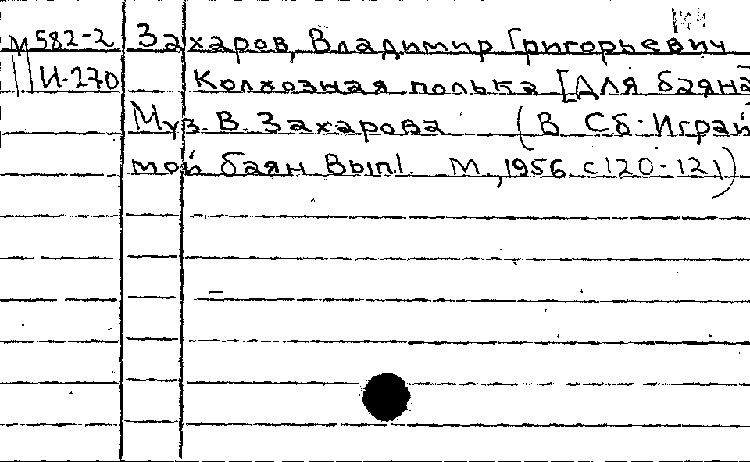 М 582-2 Захаров, Владимир Григорьевич
И-270 Колхозная полька [Для баяна]
Муз. В. Захарова (В сб: Играй
мой баян Вып1. М., 1956. с120-121)